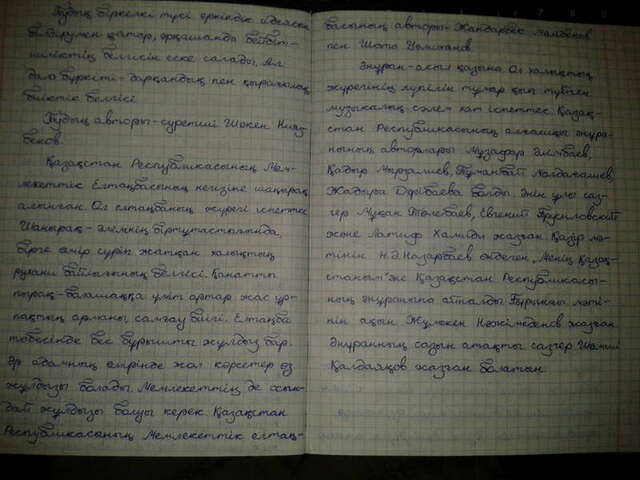 Тудың біркелкі түсі еркіндік идеясын
білдірумен қатар, әрқашанда бейбіт-
шіліктің белгісін еске салады, ал
дала бүркіті - дарқандық пен қырағылық,
биіктік белгісі.
Тудың авторы - суретші Шәкен Нияз-
беков.
Қазақстан Республикасының Мем-
лекеттік Елтаңбасының негізіне шаңырақ
алынған. Ол елтаңбаның жүрегі іспеттес
Шаңырақ - әлемнің біртұтастығында,
бірге өмір сүріп жатқан халықтың
рухани байлығының белгісі. Қанатты
пырақ - болашаққа үміт артар жас ұр-
пақтың арманы самғау биігі. Елтаңба
төбесінде бес бұрышты жұлдыз бар.
Әр адамның өмірінде жол көрсетер өз
жұлдызы болады. Мемлекеттің де осын-
дай жұлдызы болуы керек. Қазақстан
Республикасының Мемлекеттік елтаң-
басының авторы - Жандарбек Мәлібеков
пен Шота Уәлиханов.
Әнұран - асыл қазына. Ол халықтың
жүрегінің лүпілін тұмар қып түйген
музыкалық сәлем хат іспеттес. Қазақ-
стан Республикасының алғашқы әнұра-
нының авторлары Мұзафар Әлімбаев,
Қадыр Мырзалиев, Тұманбай Молдағалиев,
Жадыра Дәрібаева болды. Әнін ұлы саз-
гер Мұқан Төлебаев, Евгений Брусиловский
және Латиф Хамиди жазған. Қазір мә-
тінін Н.Ә.Назарбаев өңдеген, "Менің Қазақ-
станым" әні Қазақстан Республикасы-
ның әнұранына айналды. Бұрынғы мәті-
нін ақын Жұмекен Нәжімеденов жазған
Әнұранның сазын атақты сазгер Шәмші
Қалдаяқов жазған болатын.